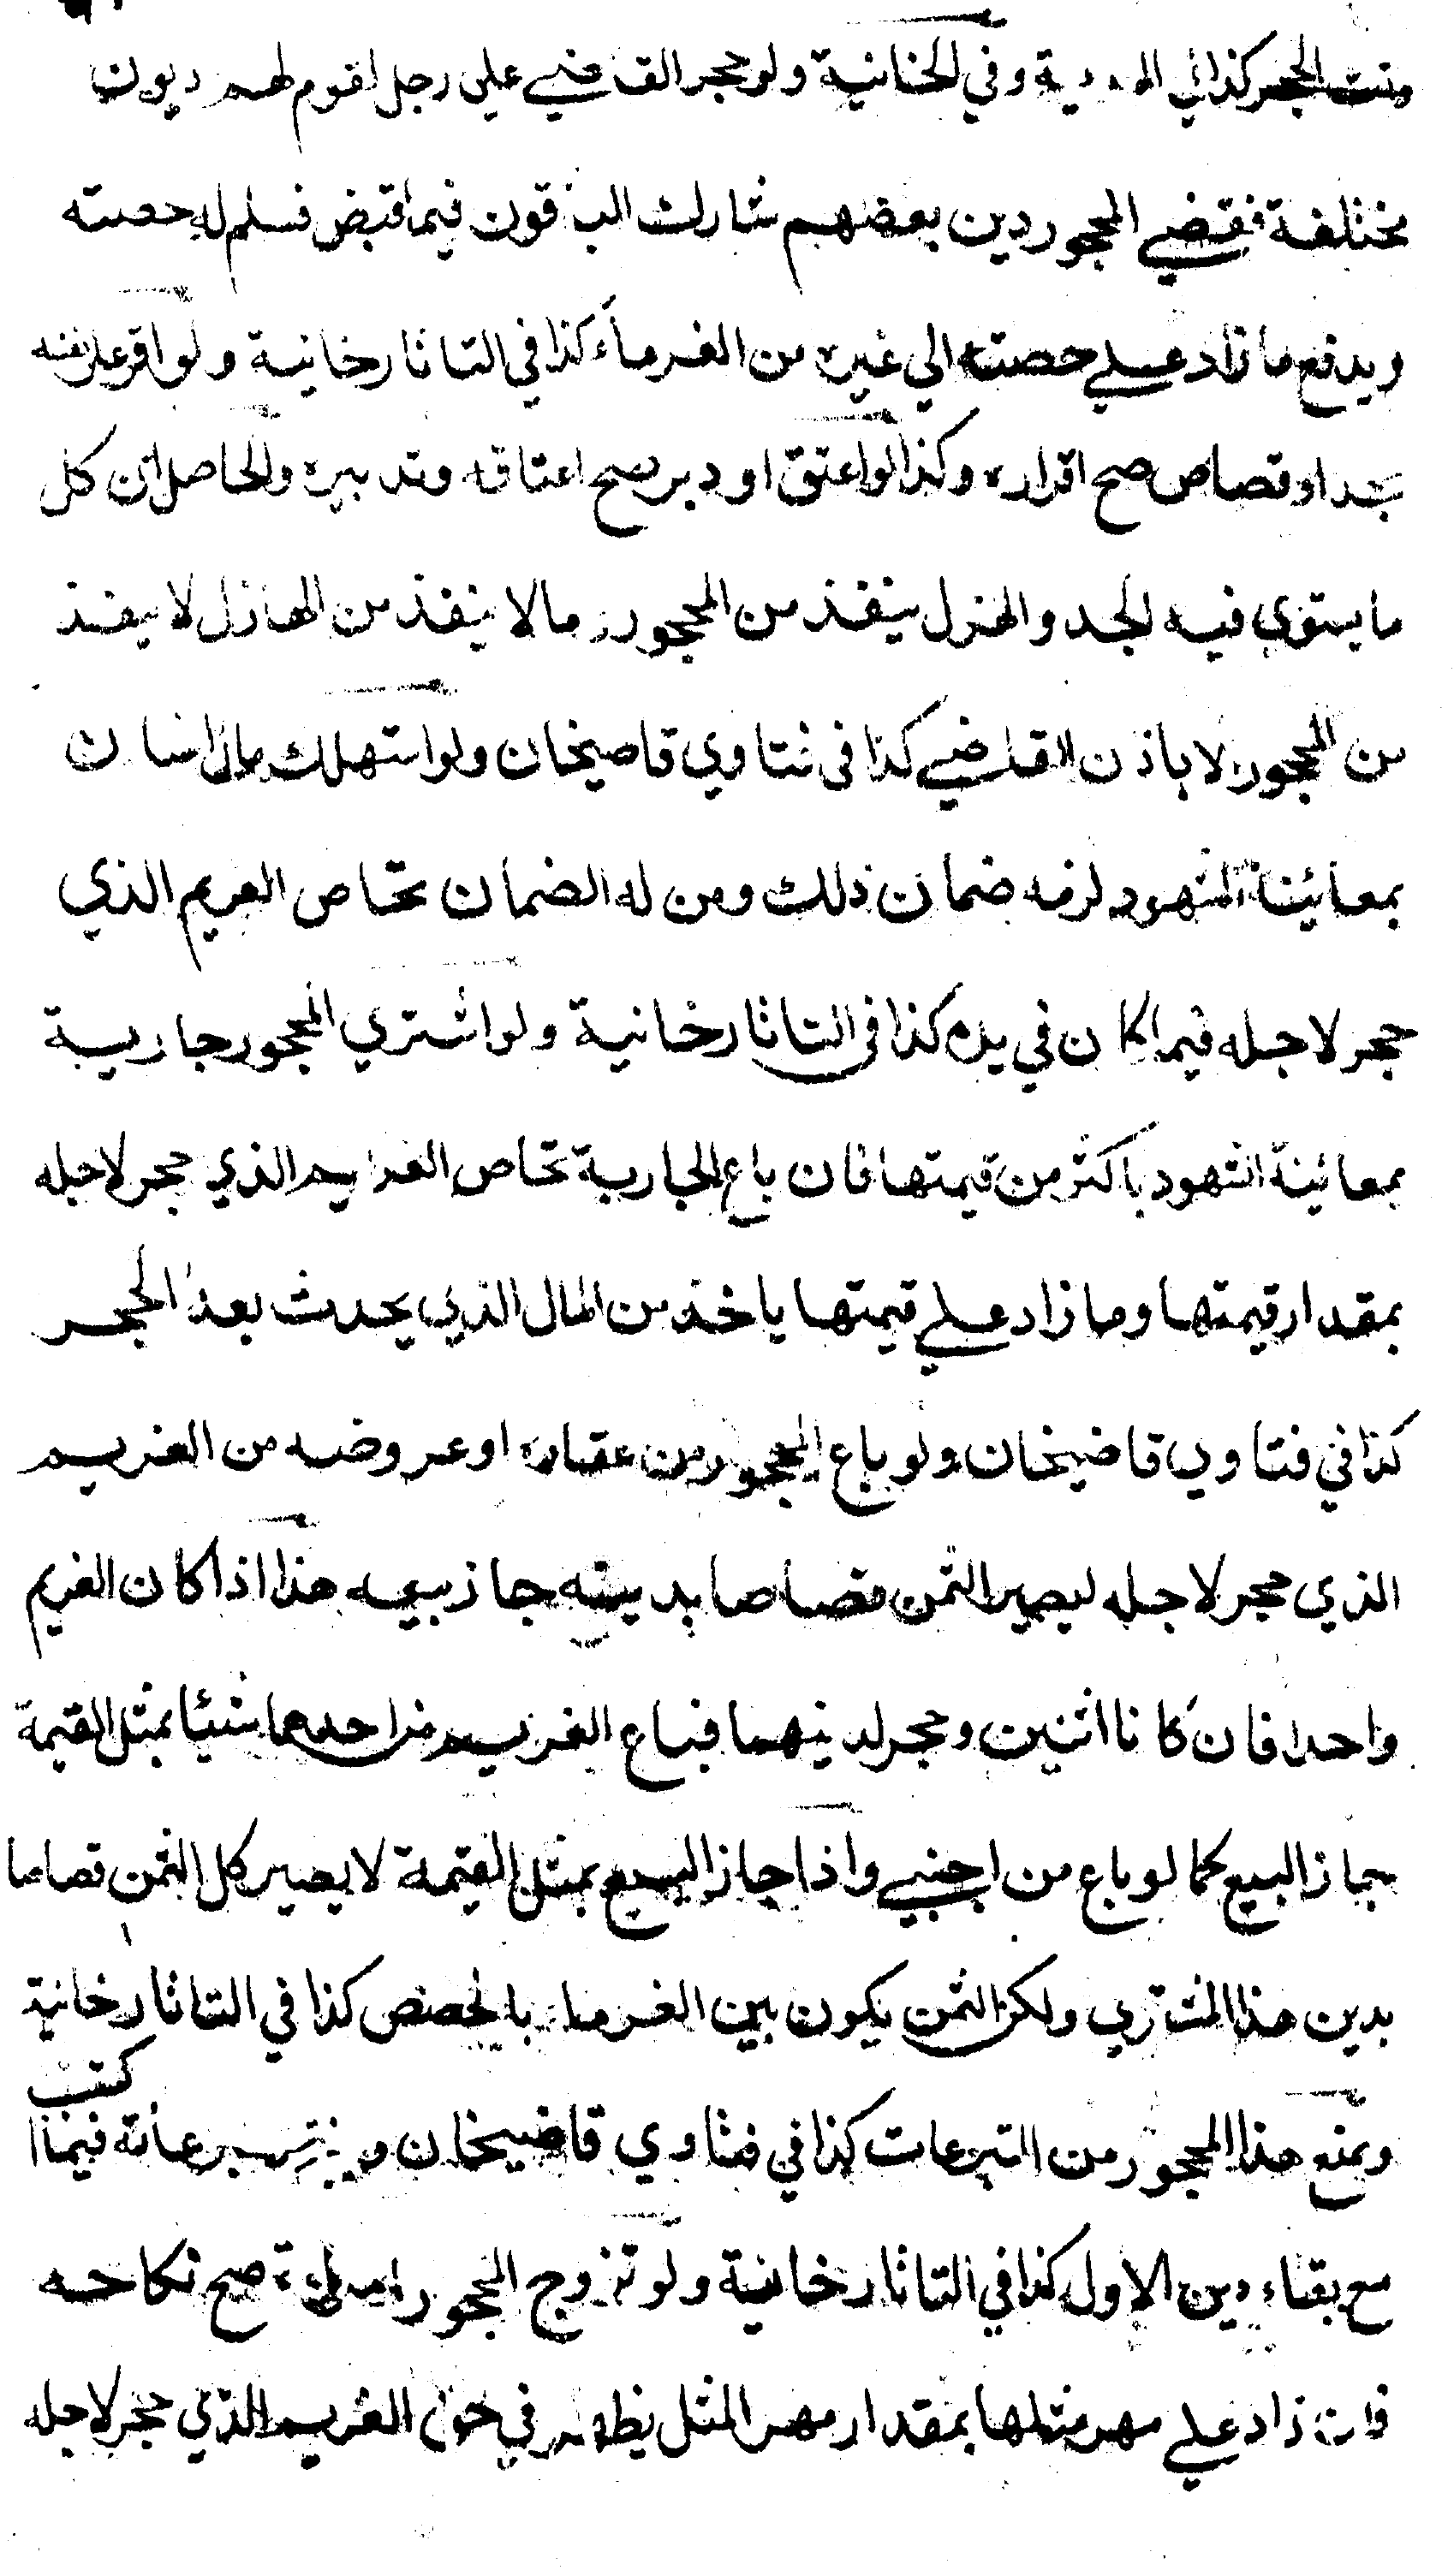 وقت الحجر كذا في وفي الخانية ولو حجر القاضي علي رجل لقوم لهم ديون
مختلفة فقضي المحجور دين بعضهم شارك الباقون فيما قبض فسلم له حصته
ويدفع ما زاد علي حصته الي غيره من الغرماء كذا في التاتارخانية ولو اقر علي نفسه
بحد او قصاص صح اقراره وكذا لو اعتق او دبر صح اعتاقه وتدبيره والحاصل ان كل
ما يستوي فيه الجد والهزل ينفذ من المحجور وما لا ينفذ من الهازل لا ينفذ
من المحجور الا باذن القاضي كذا في فتاوي قاضيخان ولو استهلك مال انسان
بمعائنة الشهود لزمه ضمان ذلك ومن له الضمان يحاص الغريم الذي
حجر لاجله فيما كان في يده كذا في التاتارخانية ولو اشتري المحجور جارية
بمعائنة الشهود باكثر من قيمتها فان بائع الجارية يحاص الغريم الذي حجر لاجله
بمقدار قيمتها وما زاد علي قيمتها ياخذ من المال الذي يحدث بعد الحجر
كذا في فتاوي قاضيخان ولو باع المحجور من عقاره او عروضه من الغريم
الذي حجر لاجله ليصير الثمن قصاصا بدينه جاز بيعه هذا اذا كان الغريم
واحدا فان كانا اثنين وحجر لدينهما فباع الغريم من احدهما شيئا بمثل القيمة
جاز البيع كما لو باع من اجنبي واذا جاز البيع بمثل القيمة لا يصير كل الثمن قصاصا
بدين هذا المشتري ولكن الثمن يكون بين الغرماء بالحصص كذا في التاتارخانية
ويمنع هذا المحجور من التبرعات كذا في فتاوي قاضيخان فيما اكتسب
مع بقاء دين الاول كذا في التاتارخانية ولو تزوج المحجور امراة صح نكاحه
فان زاد علي مهر مثلها بمقدار مهر المثل يظهر في حق الغريم الذي حجر لاجله